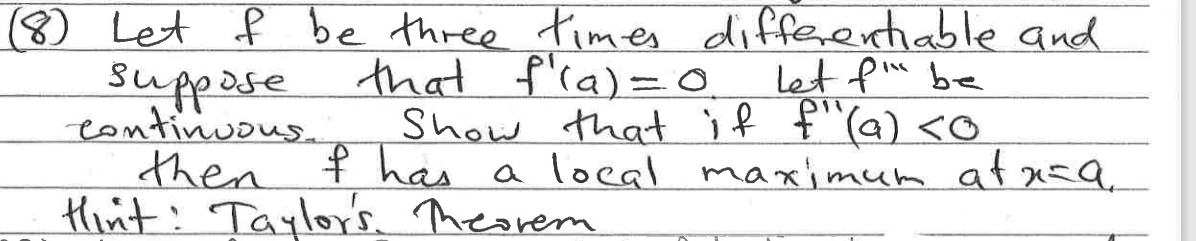 (8) Let f be three times differentiable and
suppose that f'(a)=0. Let f''' be
continuous. Show that if f''(a) <0
then f has a local maximum at x=a.
Hint: Taylor's. Theorem